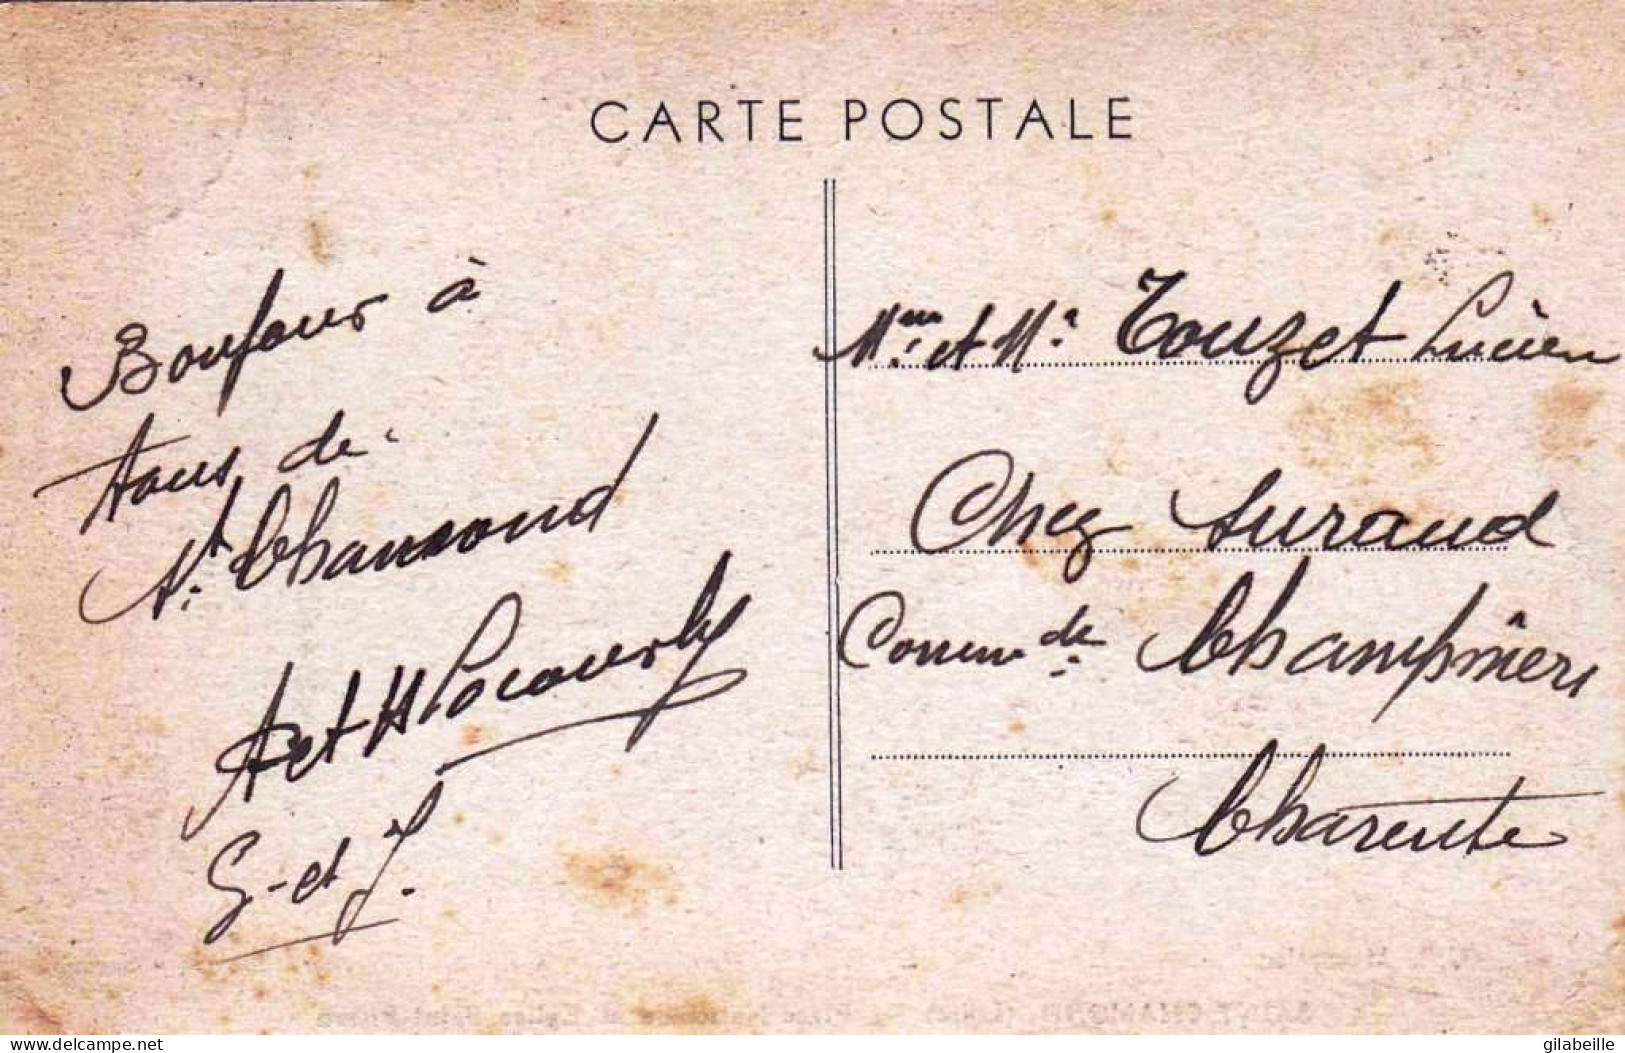 CARTE POSTALE
Bonjour à
tous de
St. Chamond
A et H
G. et J.
Mme et Mr. Touzet Lucien
Chez Suraud
Comm de Champniers
Charente
delcampe.net
gilabeille